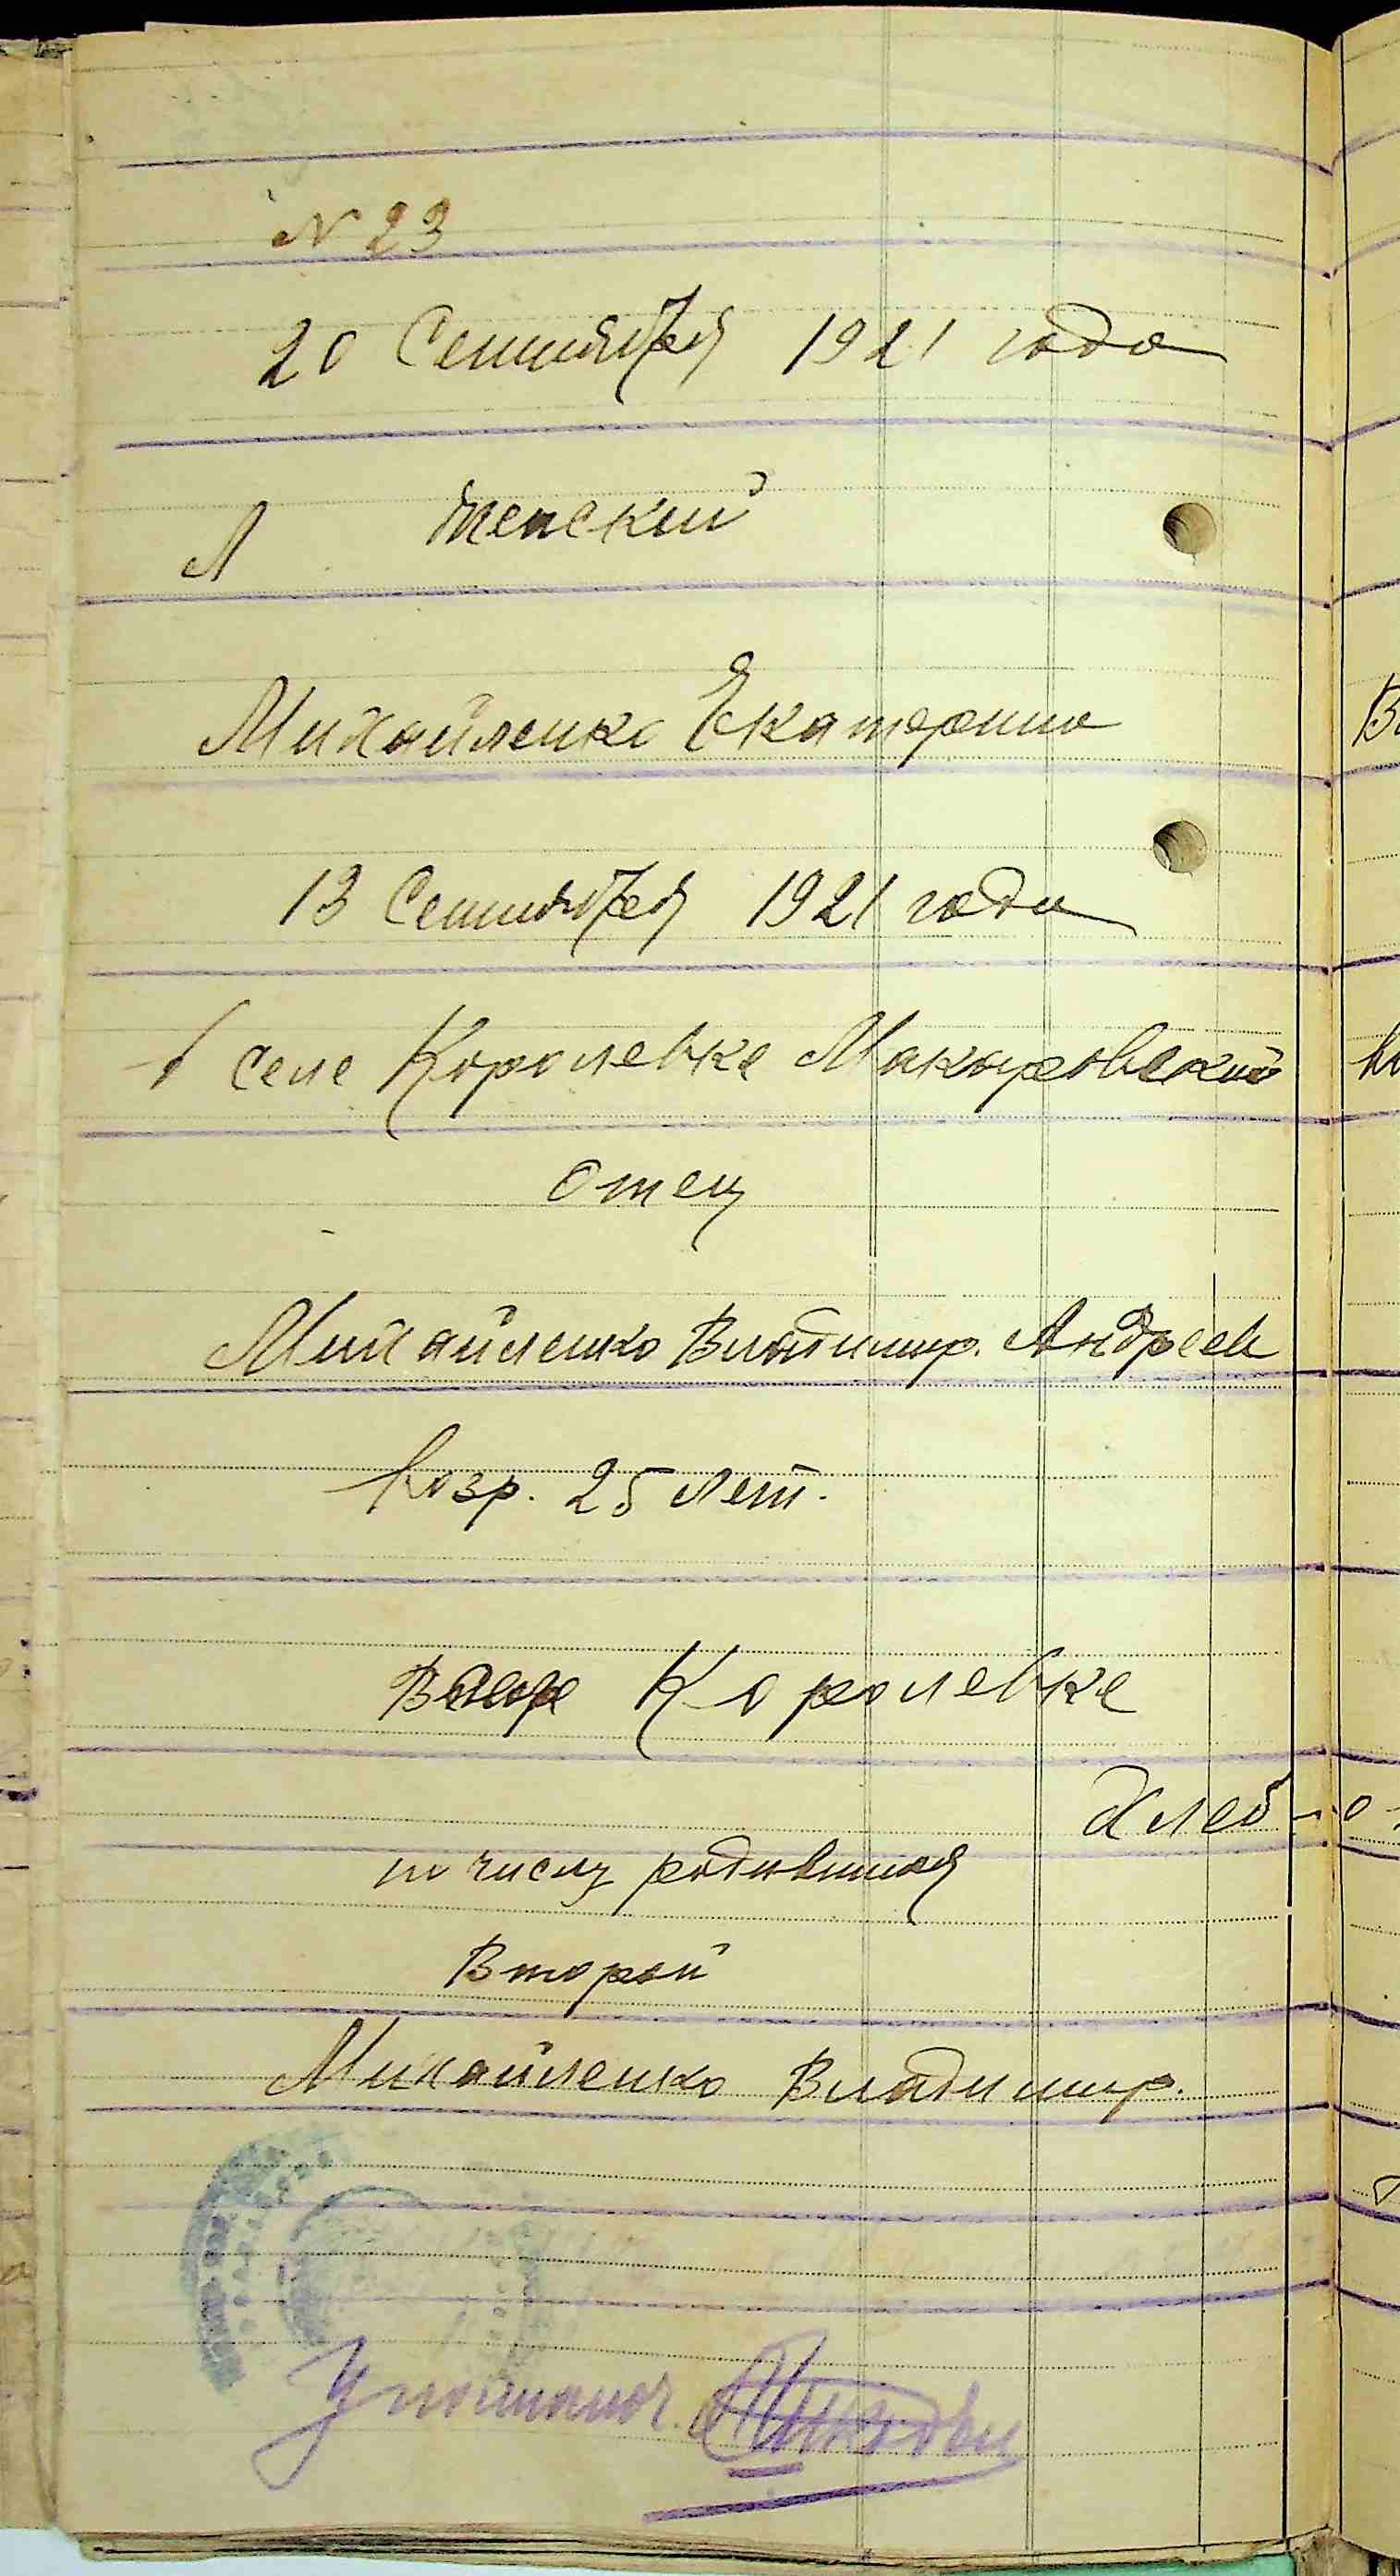 N 23
20 Сентября 1921 года
Женский
Л
Михайленко Екатерина
13 Сентября 1921 года
В селе Королевке Макаровской
Отец
Михайленко Владимир. Андреев
Возр. 25 лет.
В Королевке
Хлеб-
по числу родившихся
Второй
Михайленко Владимир.
Уполномоч.